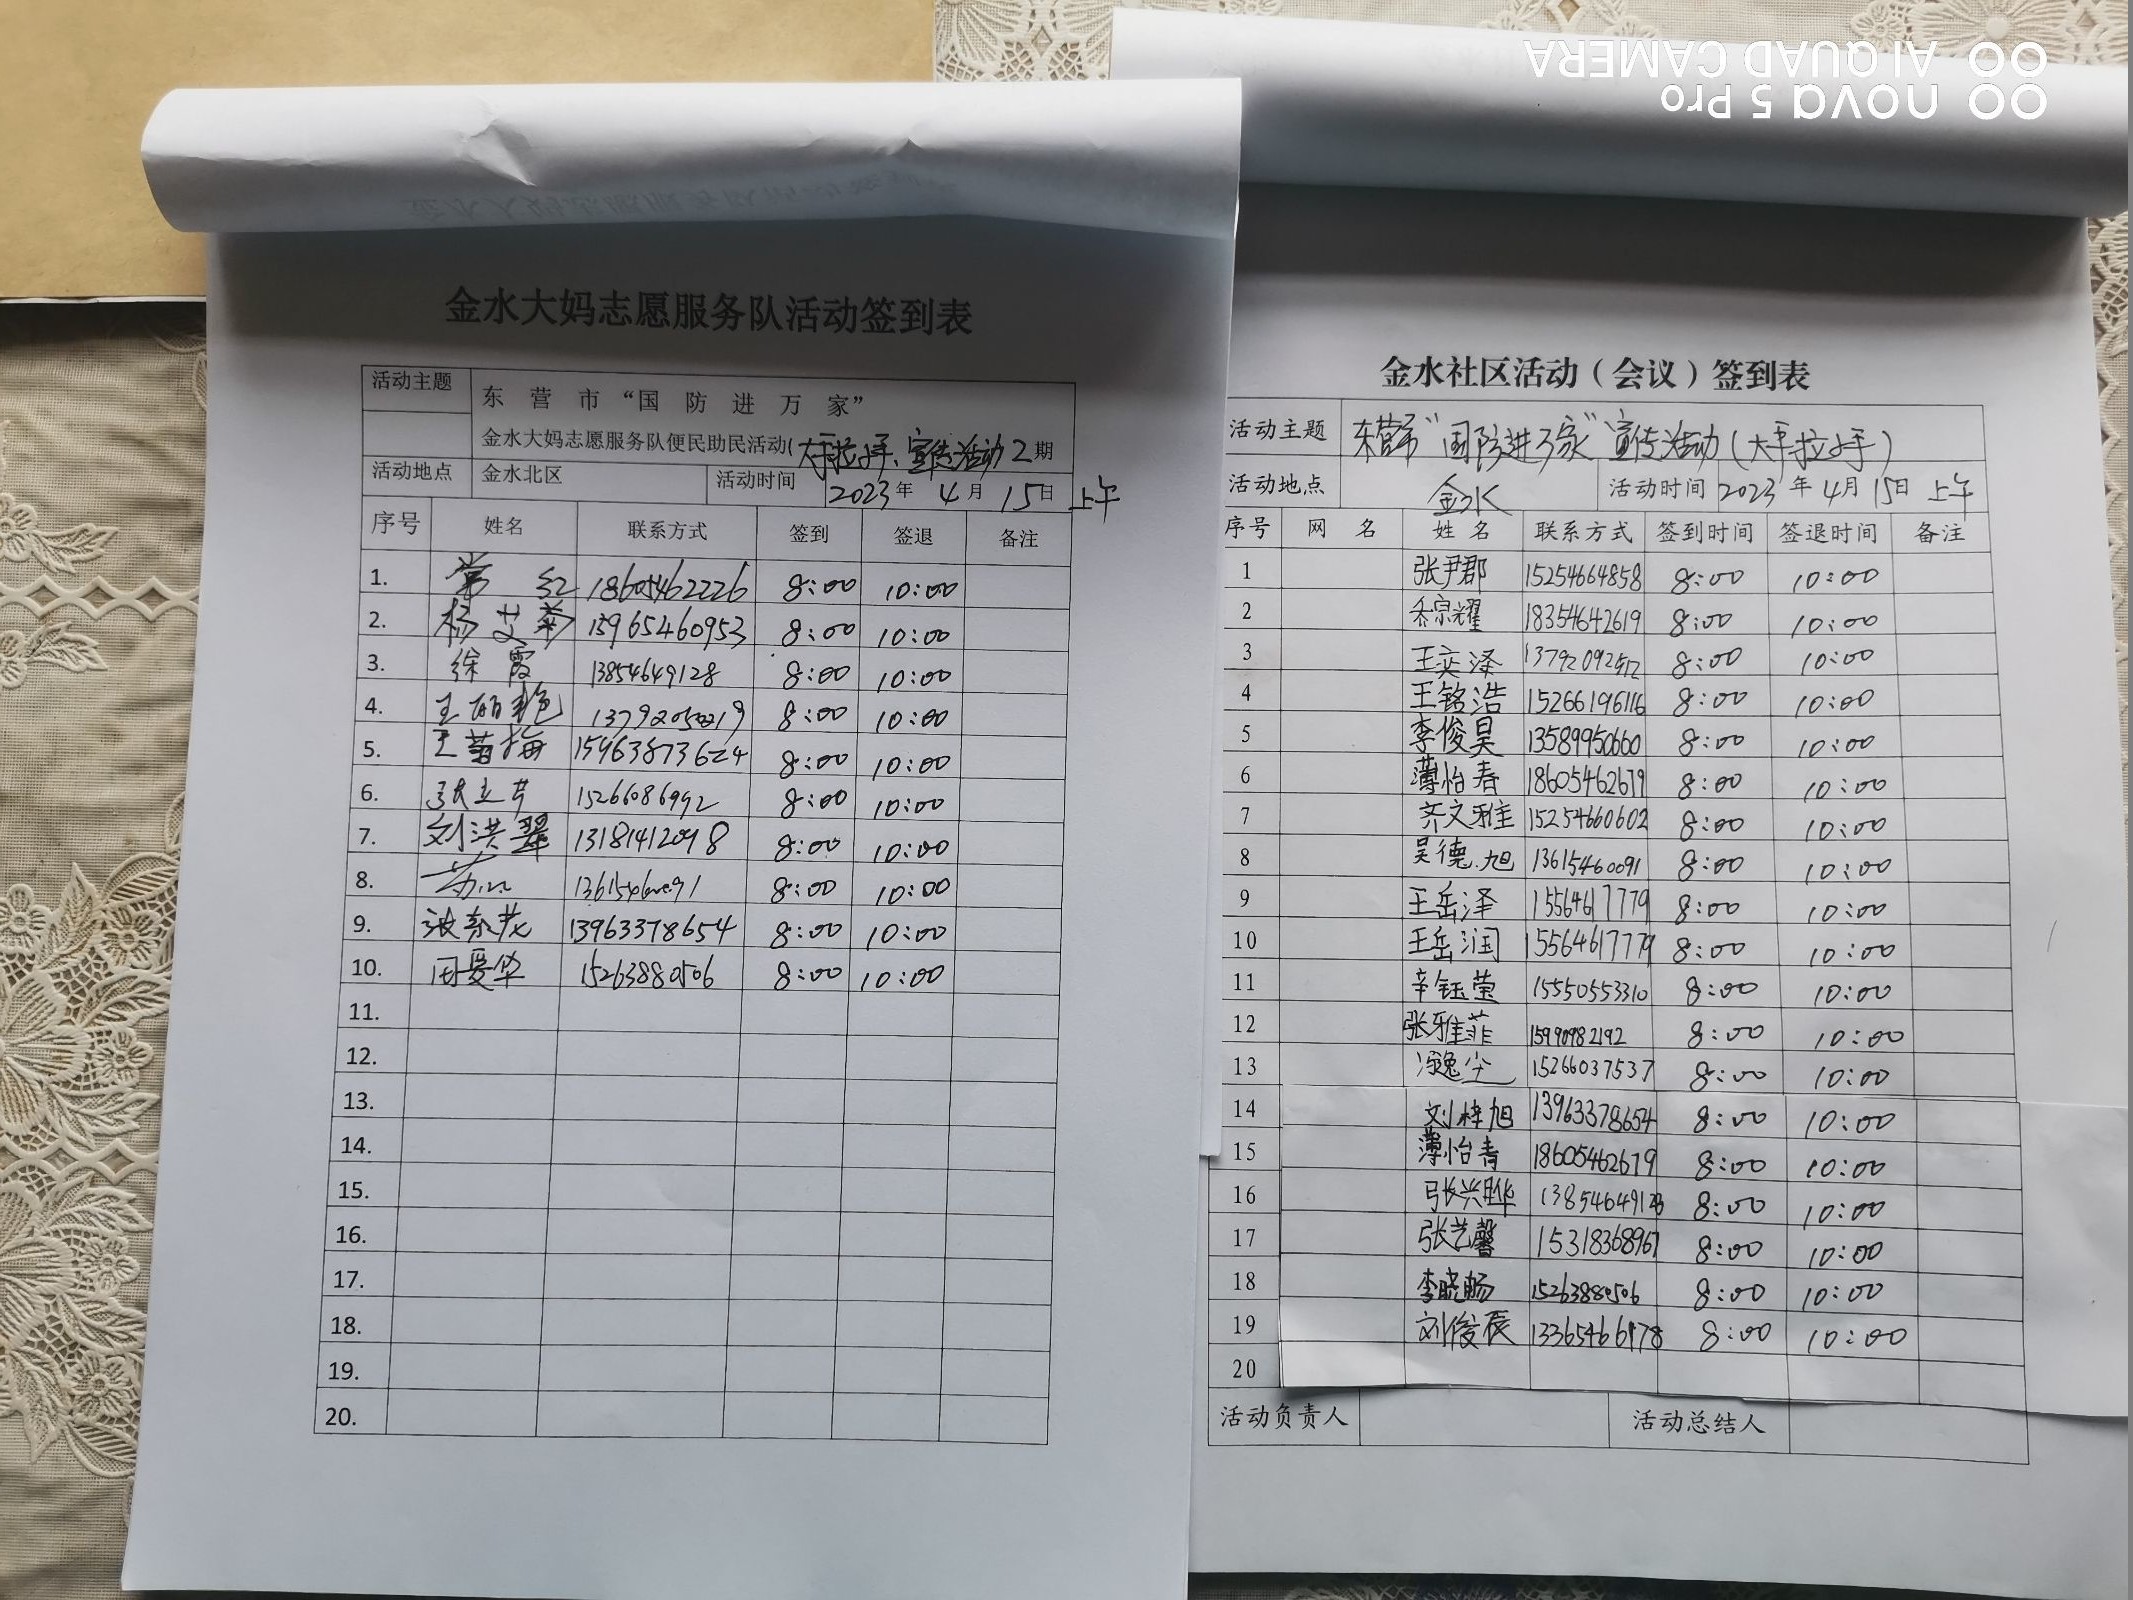 金水大妈志愿服务队活动签到表
活动主题 东营市“国防进万家”
金水大妈志愿服务队便民助民活动(大手拉小手、宣传活动2期
活动地点 金水北区 活动时间 2023年 4月 15日 上午
序号 姓名 联系方式 签到 签退 备注
1. 常红 18605462226 8:00 10:00
2. 杨艾菊 15965460953 8:00 10:00
3. 徐霞 13854649128 8:00 10:00
4. 王丽艳 8:00 10:00
5. 王菊梅 15963873624 8:00 10:00
6. 张立芹 8:00 10:00
7. 刘洪翠 8:00 10:00
8. 8:00 10:00
9. 13963378654 8:00 10:00
10. 周爱华 15263880506 8:00 10:00
11.
12.
13.
14.
15.
16.
17.
18.
19.
20.
金水社区活动（会议）签到表
活动主题 东营市“国防进万家”宣传活动(大手拉小手)
活动地点 金水 活动时间 2023年 4月 15日 上午
序号 网名 姓名 联系方式 签到时间 签退时间 备注
1 张尹郡 15254664858 8:00 10:00
2 乔宗耀 18354642619 8:00 10:00
3 王奕泽 8:00 10:00
4 王铭浩 15266196116 8:00 10:00
5 李俊昊 13589950660 8:00 10:00
6 薄怡春 18605462679 8:00 10:00
7 齐文雅 15254660602 8:00 10:00
8 吴德旭 13615460091 8:00 10:00
9 王岳泽 15564617779 8:00 10:00
10 王岳润 15564617779 8:00 10:00
11 辛钰莹 15550553310 8:00 10:00
12 张雅菲 15990982192 8:00 10:00
13 15266037537 8:00 10:00
14 刘梓旭 13963378654 8:00 10:00
15 薄怡青 18605462679 8:00 10:00
16 张兴晔 8:00 10:00
17 张艺馨 15318368967 8:00 10:00
18 李晓畅 15263880506 8:00 10:00
19 刘俊辰 13365466178 8:00 10:00
20
活动负责人 活动总结人
nova 5 Pro
AI QUAD CAMERA